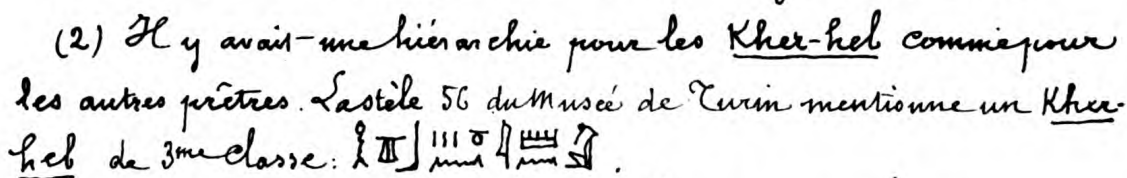 (2) Il y avait une hiérarchie pour les Kher-heb comme pour
les autres prêtres. La stèle 56 du Musée de Turin mentionne un Kher-
heb de 3me classe: .